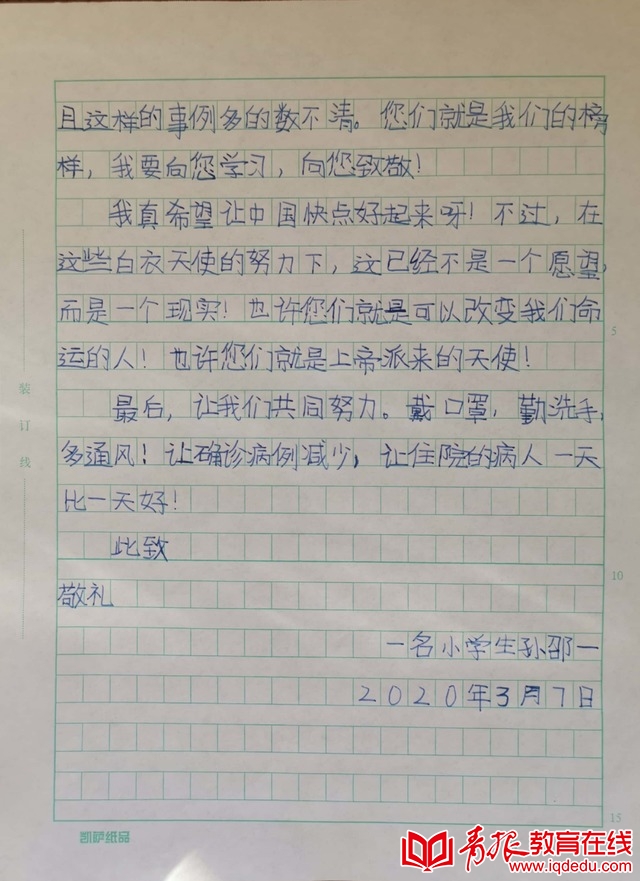 且这样的事例多的数不清。您们就是我们的榜
样，我要向您学习，向您致敬！
我真希望让中国快点好起来呀！不过，在
这些白衣天使的努力下，这已经不是一个愿望，
而是一个现实！也许您们就是可以改变我们命
运的人！也许您们就是上帝派来的天使！
最后，让我们共同努力。戴口罩，勤洗手，
多通风！让确诊病例减少，让住院的病人一天
比一天好！
此致
敬礼
一名小学生孙邵一
2020年3月7日
装订线
5
10
15
凯萨纸品
青报教育在线
www.iqdedu.com